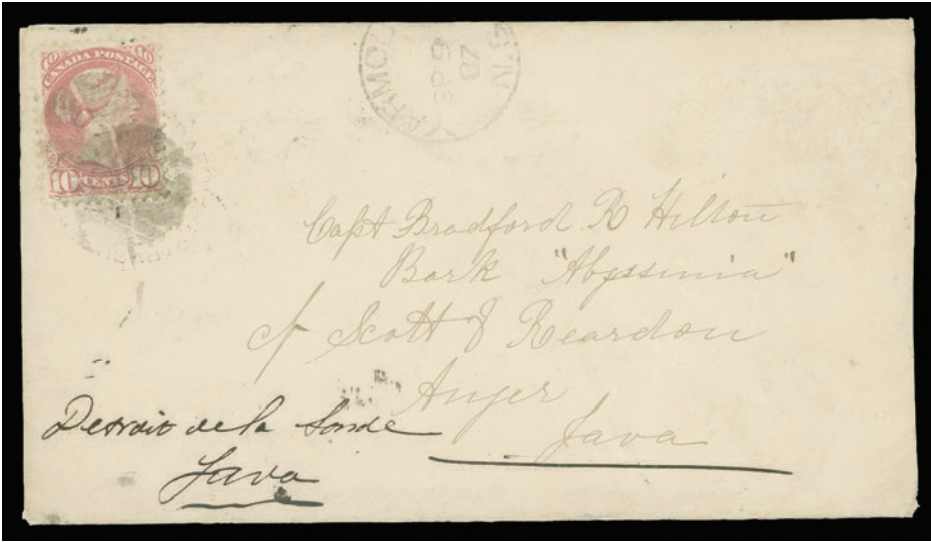 CANADA POSTAGE
10 CENTS 10
YARMO
N.S
28
Capt Bradford R Hilton
Bark "Abyssinia"
c/ Scott & Reardon
Anjer
Java
Detroit de la Sonde
Java